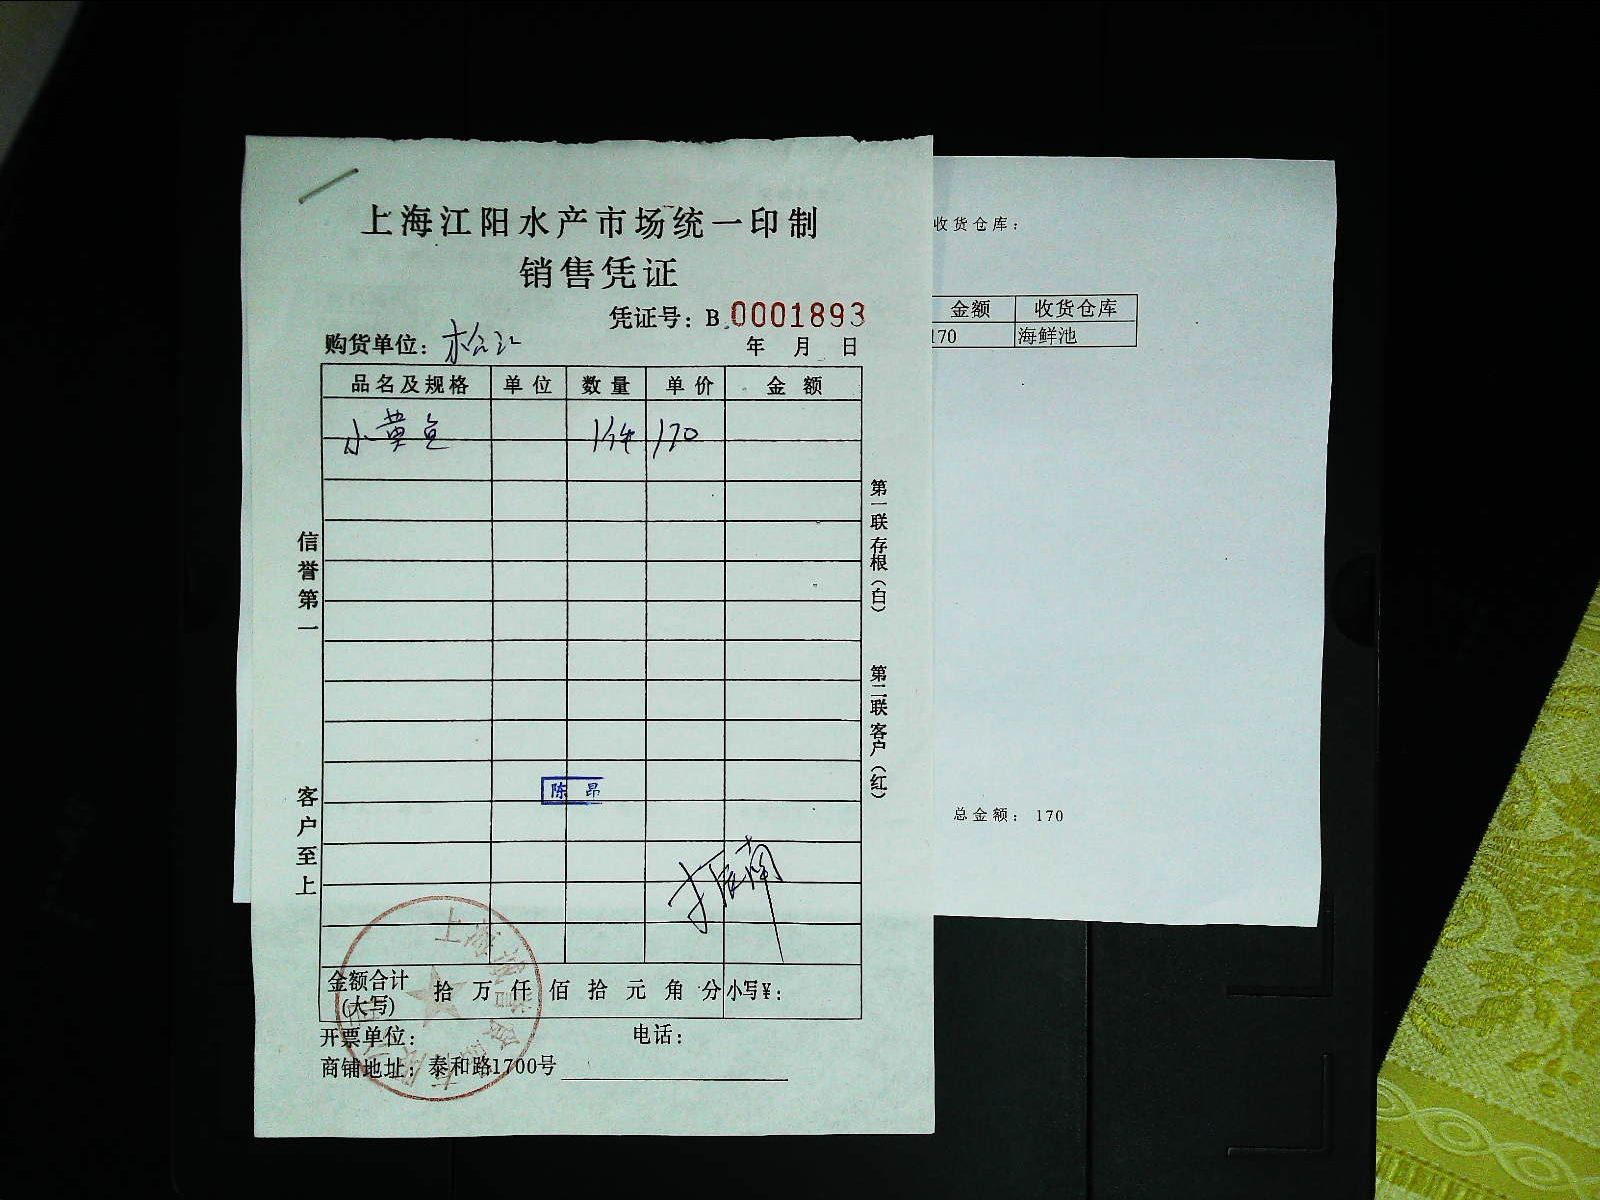 上海江阳水产市场统一印制
销售凭证
凭证号：B 0001893
购货单位：松江
年 月 日
品名及规格 单位 数量 单价 金额
小黄鱼 1件 170
信誉第一
客户至上
第一联 存根（白）
第二联 客户（红）
陈昂
金额合计（大写） 拾 万 仟 佰 拾 元 角 分 小写¥：
开票单位： 电话：
商铺地址：泰和路1700号
上海
收货仓库：
金额 收货仓库
170 海鲜池
总金额： 170